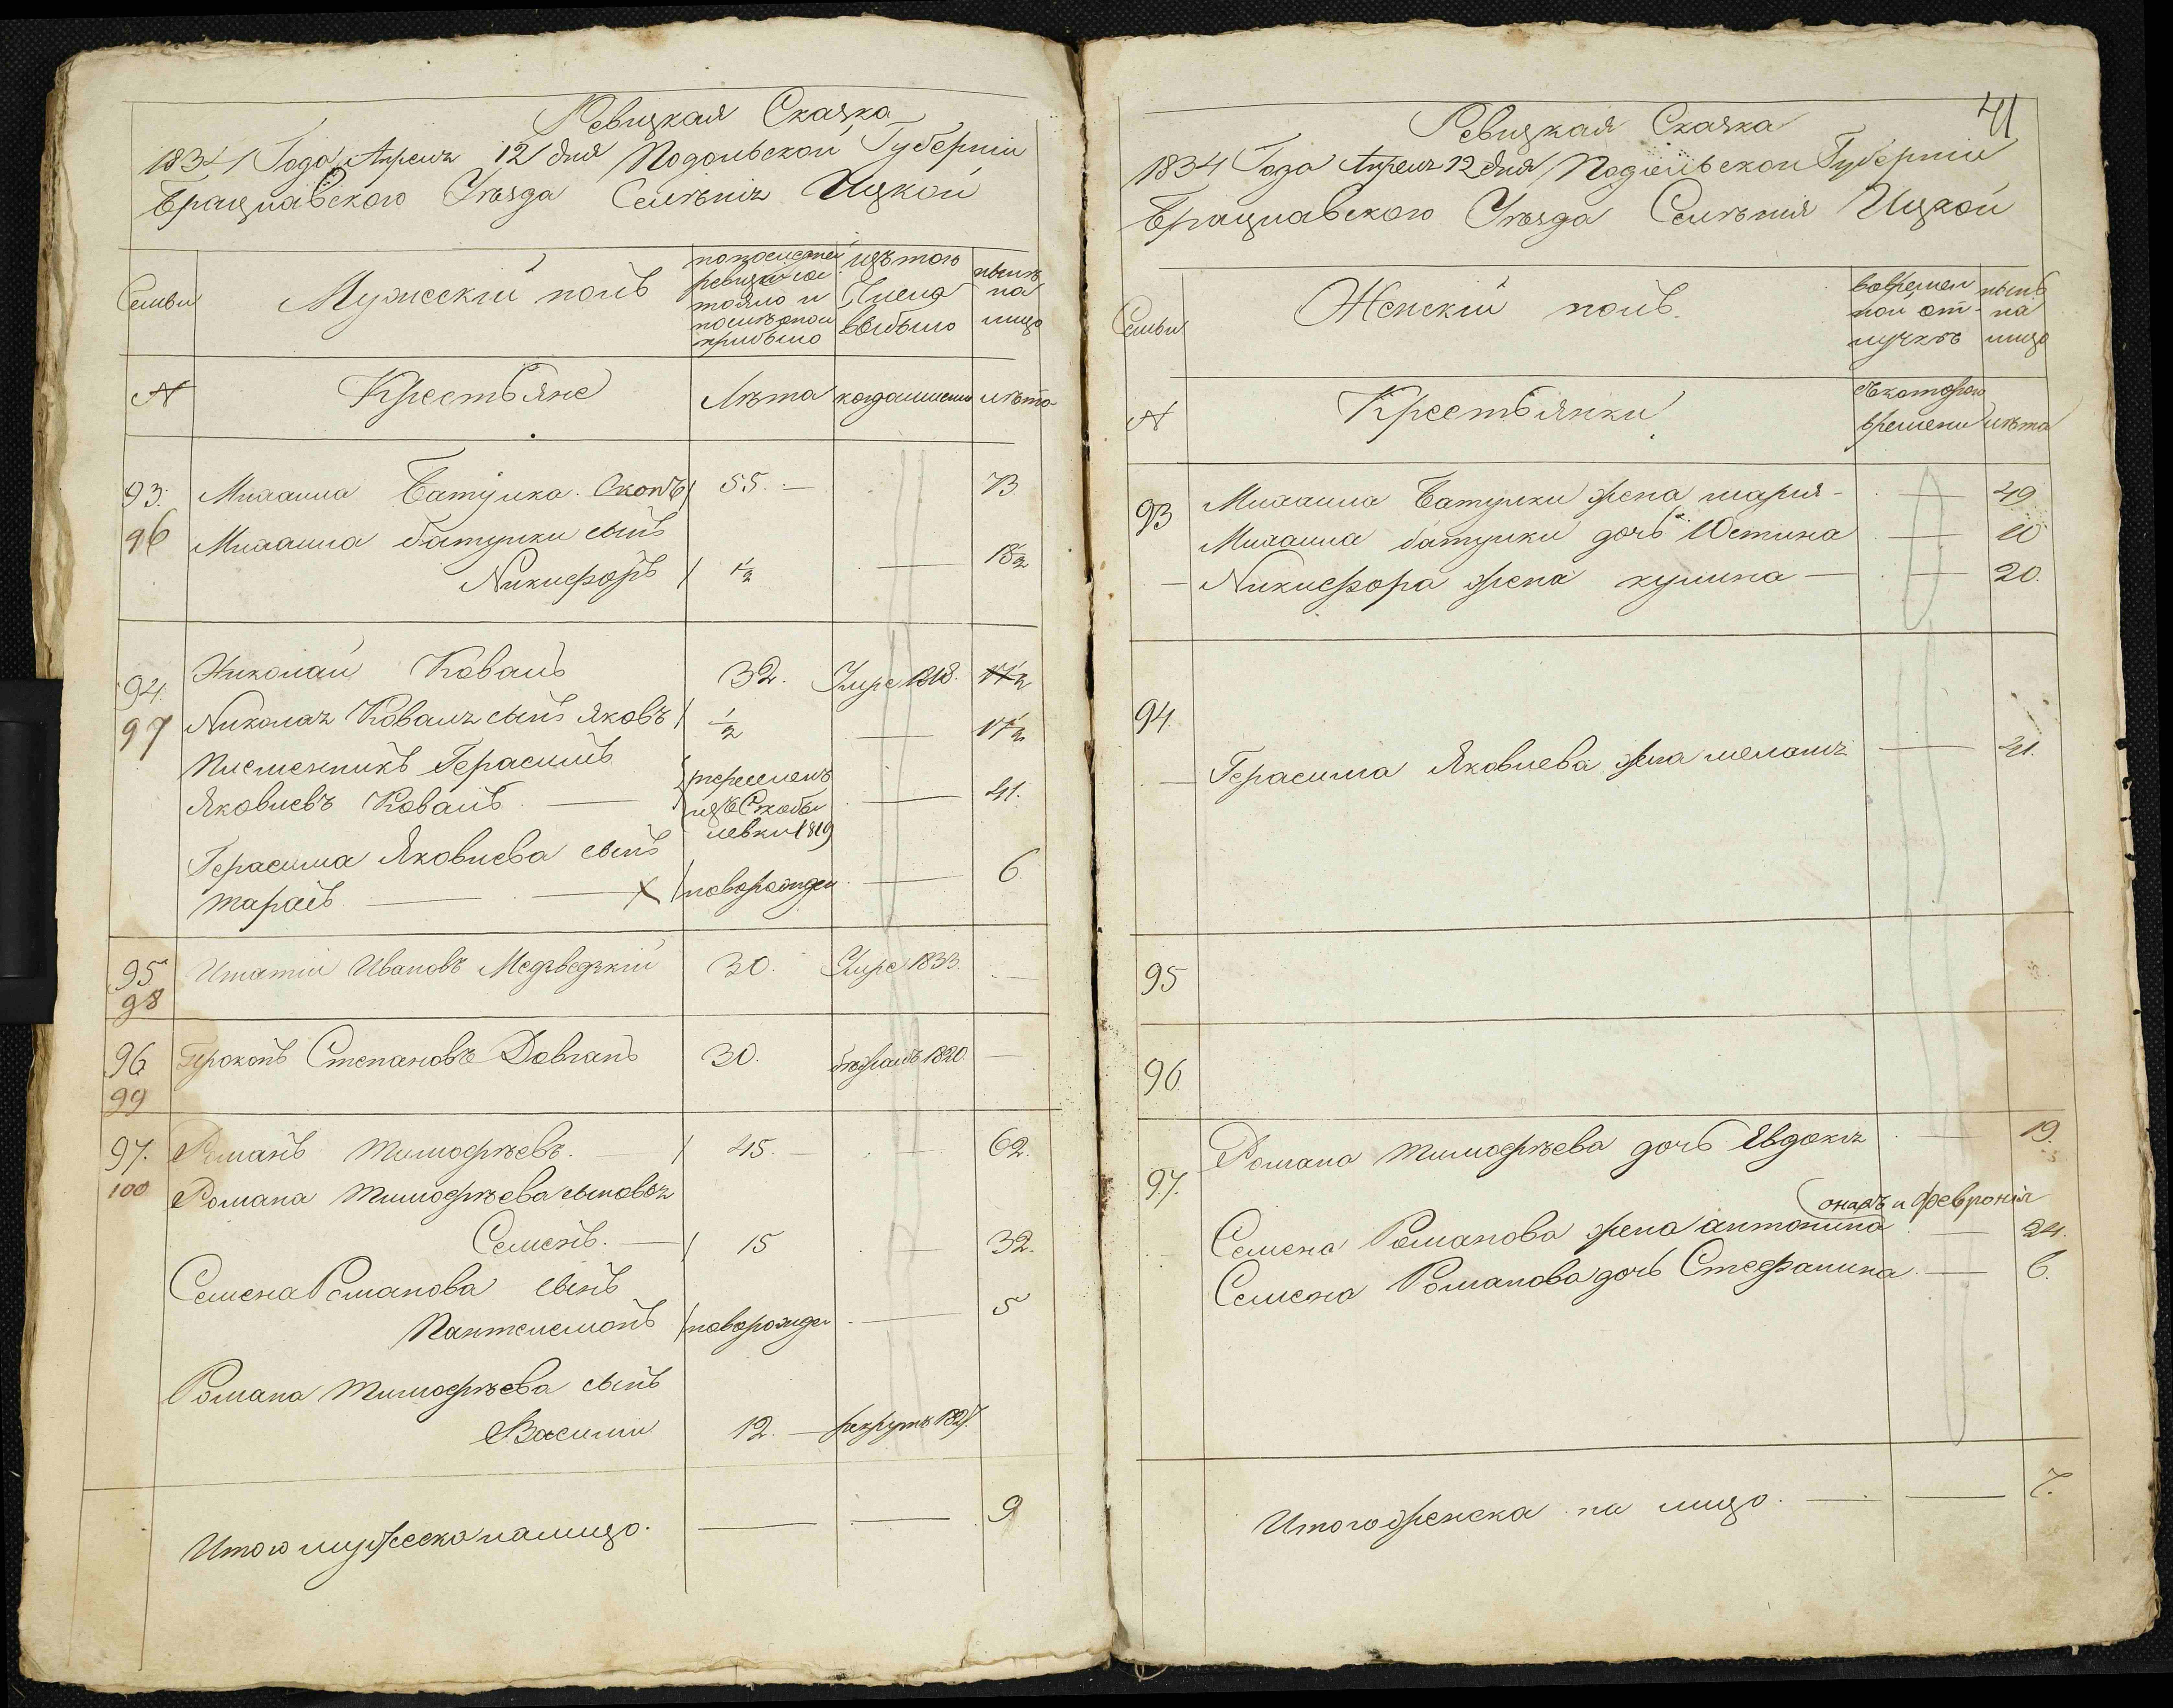 Ревизкая Сказка
1834 Года Апреля 12 дня Подольской Губерніи
Брацлавского Уѣзда Селѣнія Ицкой
Семьи
Мужескій полъ
попоследней
ревизіи со
тояло и
послѣ оной
прибыло
изъ того
Числа
выбыло
нынѣ
на
лицо
№
Крестьяне
Лѣта
когда именно
лѣта
93. Михаила Батушка. Скопъ 55. — 73
96 Михаила батушки сынъ
Никифоръ 1½ — 18½
94. Николай Коваль 32. Умре 1818. 17½
97 Николая Коваля сынъ Яковъ ½ — 17½
Племенникъ Герасимъ
Яковлевъ Коваль — перешелъ — 41.
изъ Скобе
левки 1819
Герасима Яковлева сынъ
тарасъ — х новорожден — 6.
95 Игнатій Ивановъ Медвѣдзкій 30. Умре 1833. —
98
96 Прокопъ Степановъ Довгань 30. бѣжалъ 1820. —
99
97. Романъ тимофѣевъ. 45. — 62.
100 Романа тимофѣева сыновья
Семенъ. — 15 — 32.
Семена Романова сынъ
Пантелемонъ новорожден — 5
Романа тимофѣева сынъ
Василий 12. — рекрутъ 1827.
Итого мужеска налицо. — — 9
41
Ревизкая Сказка
1834 Года Апреля 12 дня Подольской Губерніи
Брацлавского Уѣзда Селѣнія Ицкой
Семьи
Женскій полъ.
вовремен
ной от-
лучкѣ
нынѣ
на
лицо
№
Крестьянки
съ которого
времени
лѣта
93 Михаила Батушки жена мария — — 49
Михаила батушки дочь Юстина — 10
— Никифора жена кулина — — 20.
94.
— Герасима Яковлева жена меланя — 41.
95
96.
97. Романа тимофѣева дочь Явдокія — 19.
онажъ и Февронія
Семена Романова жена антонина — 24.
Семена Романова дочь Стефанина — 6.
Итого женска на лицо. — — 7.